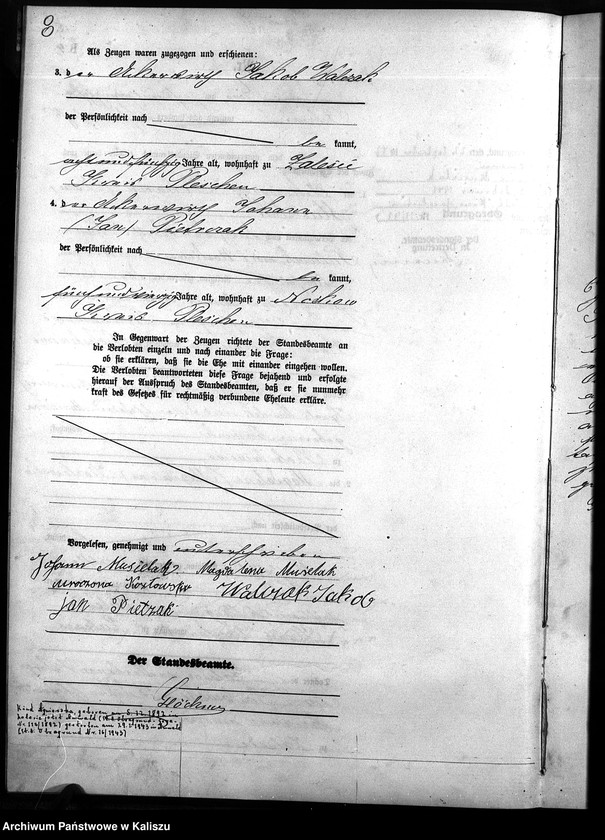 8
Als Zeugen waren zugezogen und erschienen:
3. der Ackerwirth Jakob Walczak
der Persönlichkeit nach
be kannt,
acht und fünfzig Jahre alt, wohnhaft zu Zalesie
Kreis Pleschen
4. der Ackerwirth Johann
(Jan) Pietrzak
der Persönlichkeit nach
be kannt,
fünf und vierzig Jahre alt, wohnhaft zu Noskow
Kreis Pleschen
In Gegenwart der Zeugen richtete der Standesbeamte an
die Verlobten einzeln und nach einander die Frage:
ob sie erklären, daß sie die Ehe mit einander eingehen wollen.
Die Verlobten beantworteten diese Frage bejahend und erfolgte
hierauf der Ausspruch des Standesbeamten, daß er sie nunmehr
kraft des Gesetzes für rechtmäßig verbundene Eheleute erkläre.
Vorgelesen, genehmigt und unterschrieben
Johann Musielak Magdalena Musielak
urodzona Kozłowska Walczak Jakob
jan Pietzak
Der Standesbeamte.
Glöckner
Kind Agnieszka, geboren am 5.12.1892 in
Nr. 126/1892) gestorben am 29.3.1943 in
Nr. 26/1943)
Archiwum Państwowe w Kaliszu